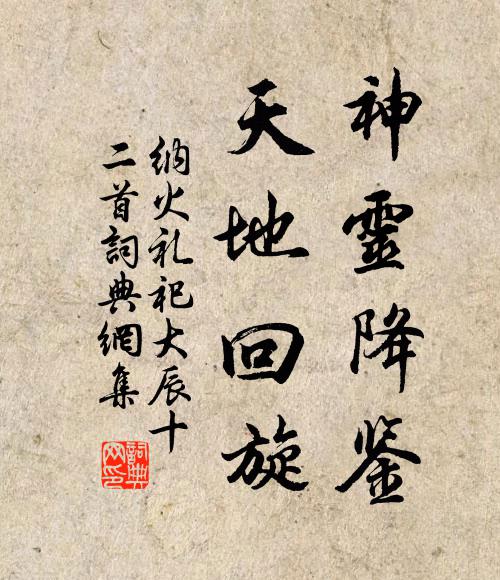 神靈降鉴
天地回旋
纳火礼祀大辰十
二首詞典網集
詞典
网印